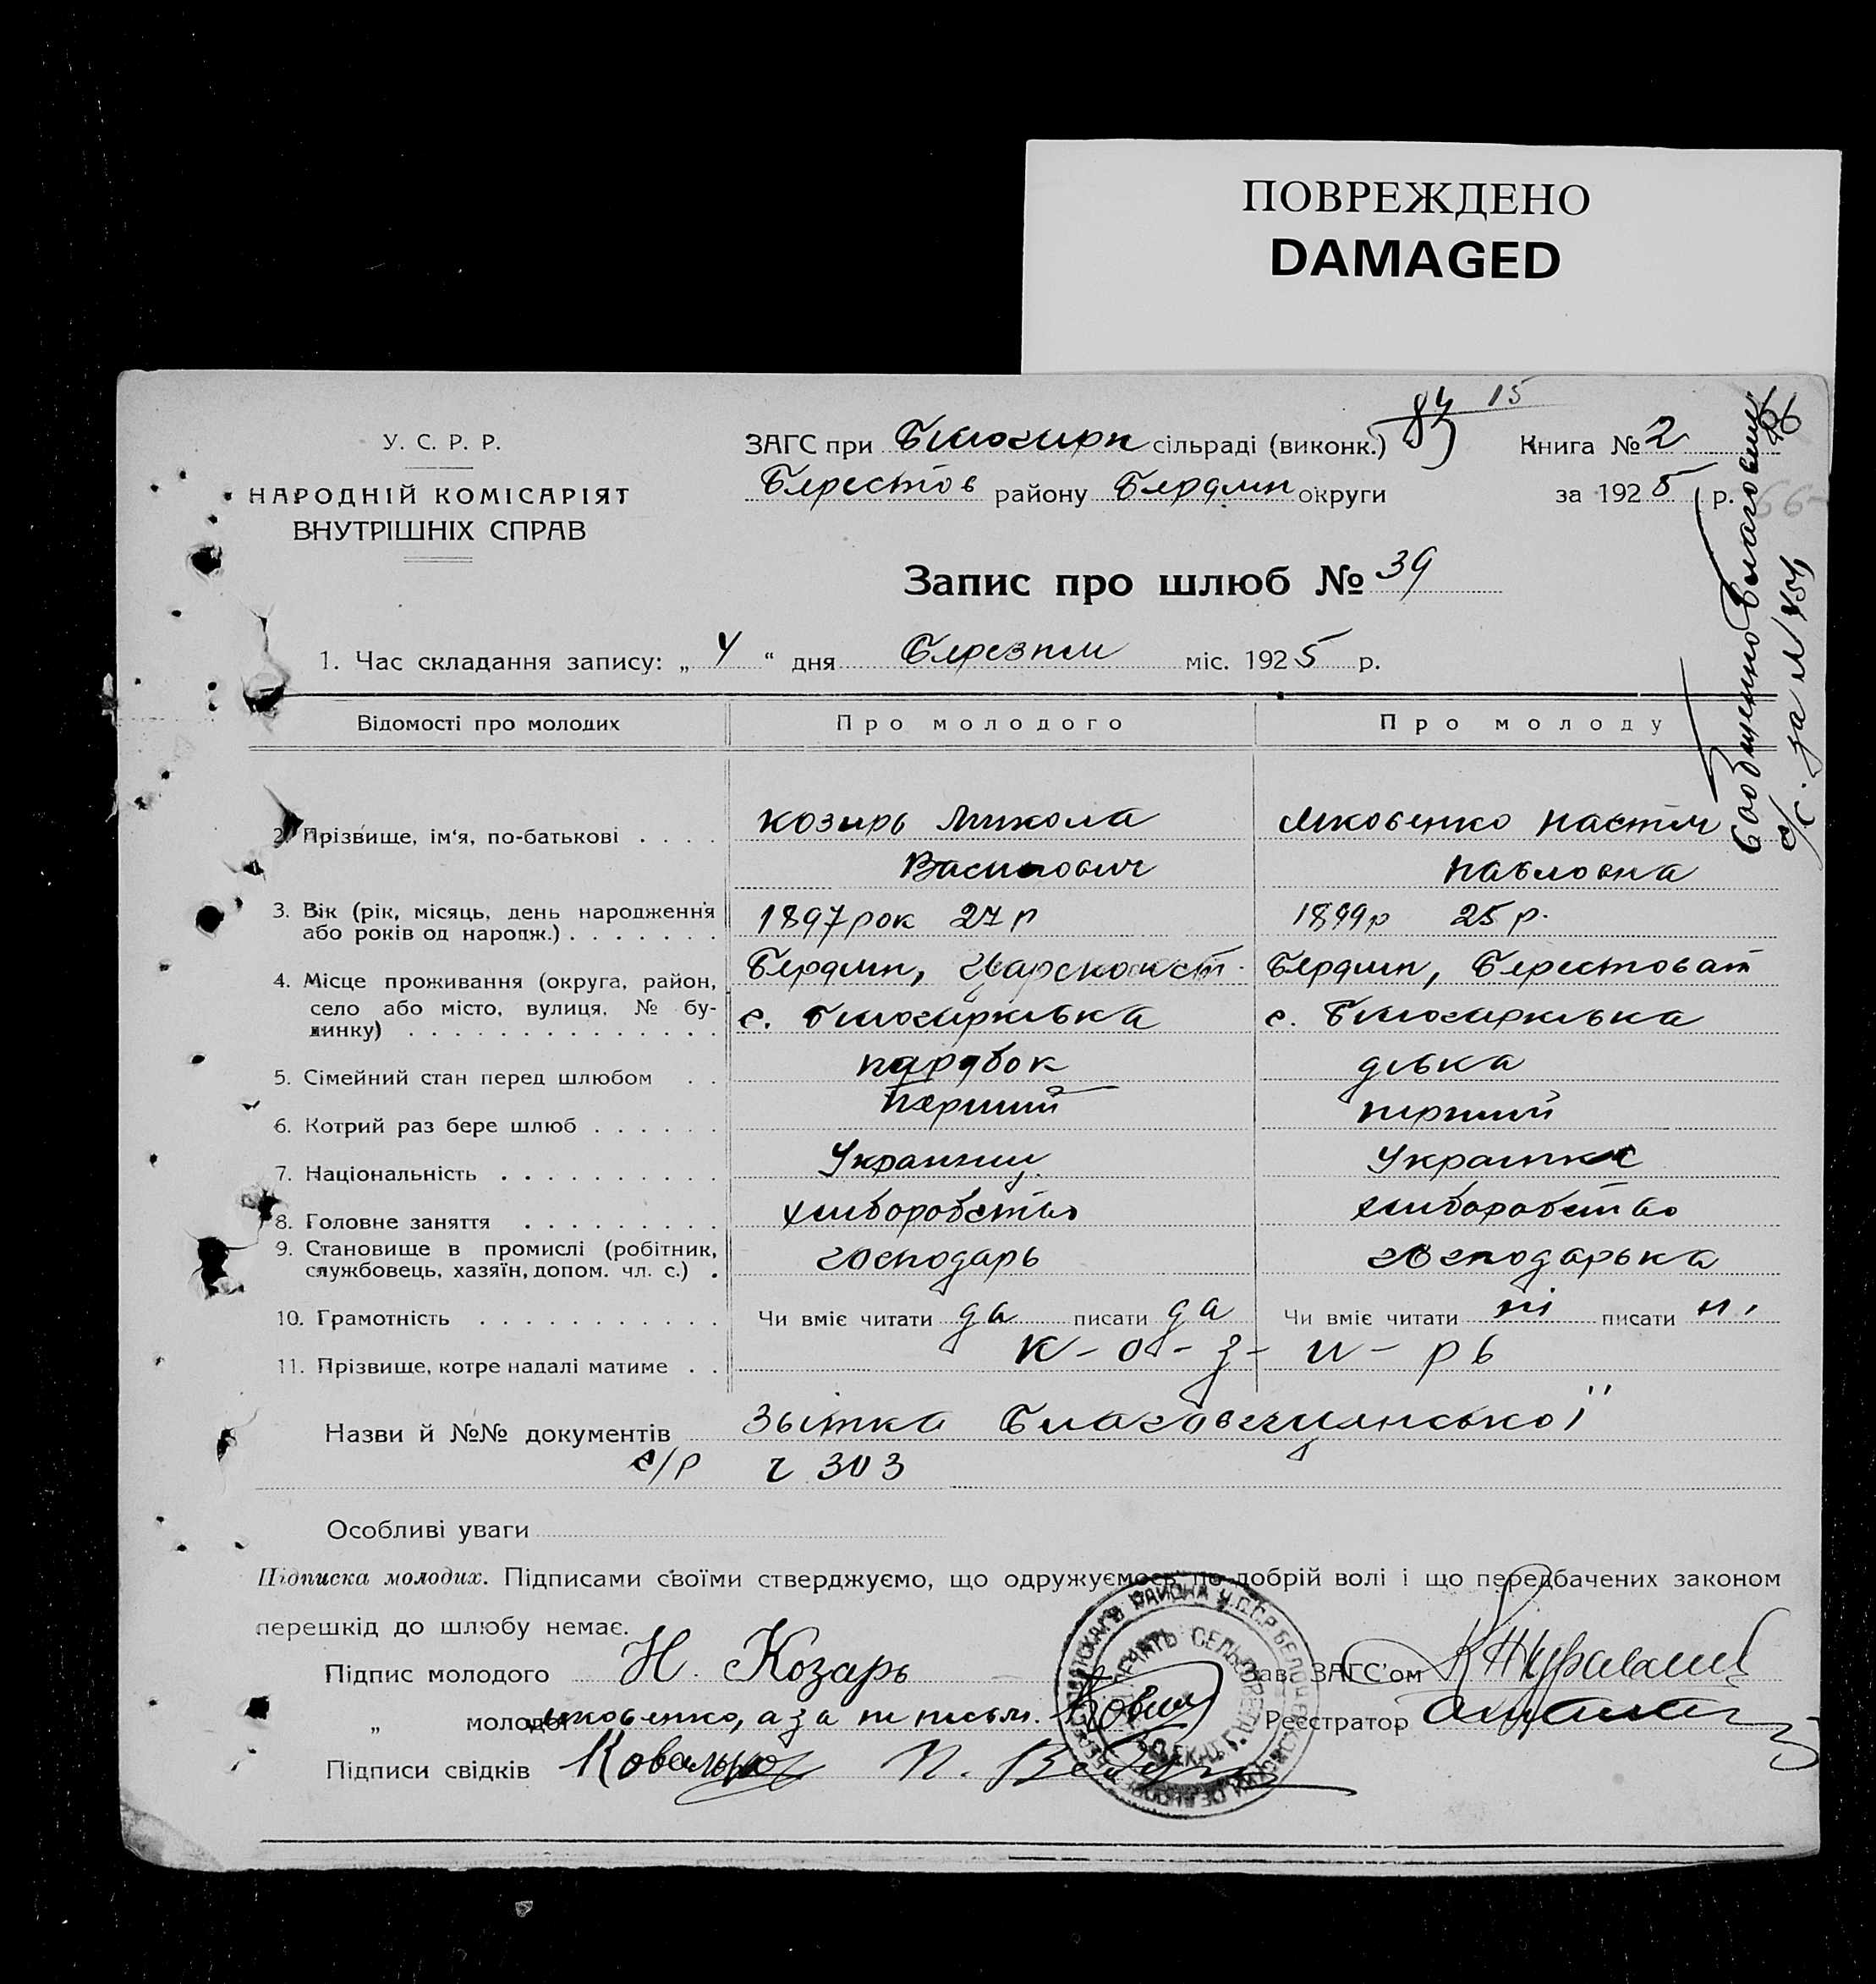 ПОВРЕЖДЕНО
DAMAGED
84 15
У. С. Р. Р.
НАРОДНІЙ КОМІСАРІЯТ
ВНУТРІШНІХ СПРАВ
ЗАГС при Білоцирк сільраді (виконк.)
Берестов району Бердян округи
Книга № 2
за 1925 р.
66
Запис про шлюб № 39
1. Час складання запису: „ 4 “ дня Березня міс. 1925 р.
Відомості про молодих Про молодого Про молоду
2. Прізвище, ім'я, по-батькові . . . . Козирь Микола Яковенко Настя
Василович Павловна
3. Вік (рік, місяць, день народження 1897 рок 27 р 1899 р 25 р.
або років од народж.) . . . . . . .
4. Місце проживання (округа, район, Бердян, Царекон Бердян, Берестоват
село або місто, вулиця, № бу- с. Білоцирківка с. Білоцирківка
динку) . . . . . . . . . . . . . .
5. Сімейний стан перед шлюбом . . парубок дівка
6. Котрий раз бере шлюб . . . . . . Перший перший
7. Національність . . . . . . . . . . Украинець Украинка
8. Головне заняття . . . . . . . . . хліборобство хліборобство
9. Становище в промислі (робітник, господарь господарька
службовець, хазяїн, допом. чл. с.) .
10. Грамотність . . . . . . . . . . . Чи вміє читати да писати да Чи вміє читати ні писати ні
11. Прізвище, котре надалі матиме . . К - о - з - и - рь
Назви й №№ документів Звітка Благовещянської
с/р ч 303
Особливі уваги
Підписка молодих. Підписами своїми стверджуємо, що одружуємось по добрій волі і що передбачених законом
перешкід до шлюбу немає.
Підпис молодого Н. Козарь Зав. ЗАГС'ом
„ молодої Яковенко, а за не письм. Реєстратор
Підписи свідків
Сообщенно Благовещ
с/с. за №